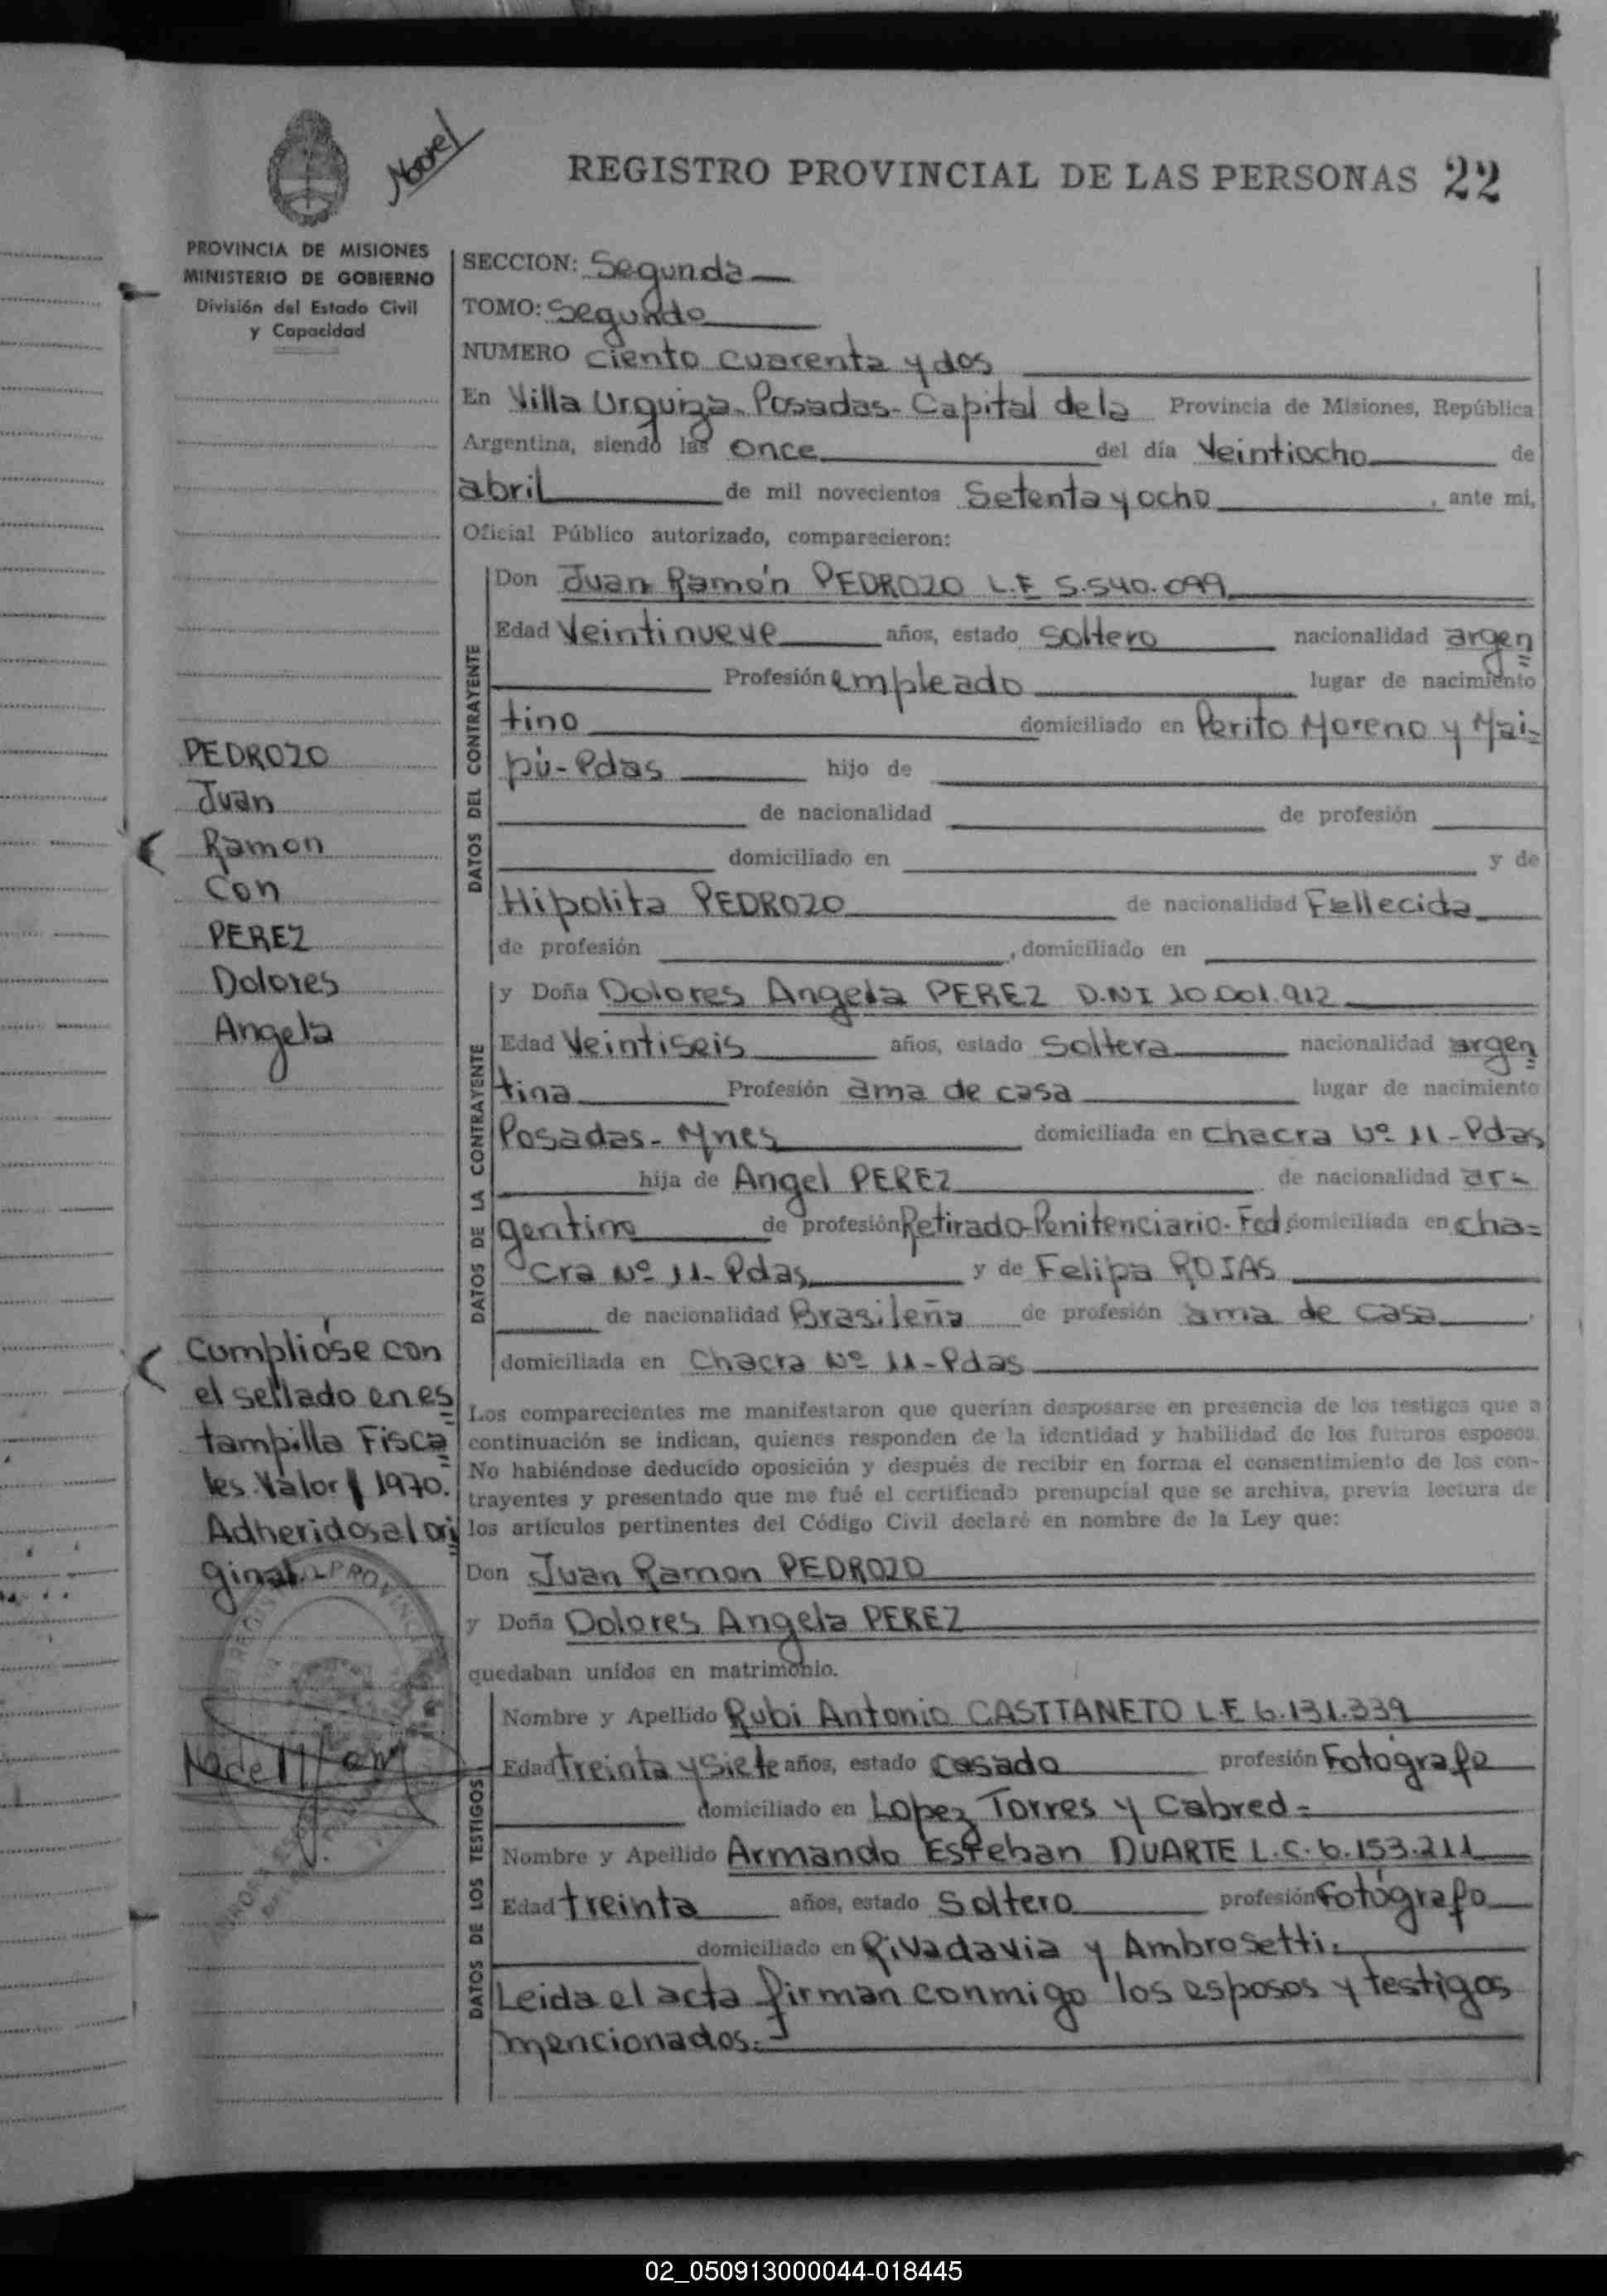 Noorel
REGISTRO PROVINCIAL DE LAS PERSONAS 22
PROVINCIA DE MISIONES
MINISTERIO DE GOBIERNO
División del Estado Civil
y Capacidad
SECCION: Segunda
TOMO: Segundo
NUMERO ciento cuarenta y dos
En Villa Urquiza- Posadas- Capital de la Provincia de Misiones, República
Argentina, siendo las once del día Veintiocho de
abril de mil novecientos Setenta y ocho, ante mi,
Oficial Público autorizado, comparecieron:
DATOS DEL CONTRAYENTE
Don Juan Ramón PEDROZO L.E 5.540.099
Edad Veintinueve años, estado soltero nacionalidad argen
Profesión empleado lugar de nacimiento
tino domiciliado en Perito Moreno y Mai-
pú-Pdas hijo de
de nacionalidad de profesión
domiciliado en y de
Hipolita PEDROZO de nacionalidad Fellecida
de profesión , domiciliado en
DATOS DE LA CONTRAYENTE
y Doña Dolores Angela PEREZ D.NI 10.001.912
Edad Veintiseis años, estado Soltera nacionalidad argen
tina Profesión ama de casa lugar de nacimiento
Posadas- Mnes domiciliada en chacra Nº 11-Pdas
hija de Angel PEREZ de nacionalidad ar-
gentino de profesión Retirado-Penitenciario-Fed. domiciliada en cha=
cra Nº 11- Pdas y de Felipa ROJAS
de nacionalidad Brasileña de profesión ama de casa
domiciliada en Chacra Nº 11-Pdas
Los comparecientes me manifestaron que querían desposarse en presencia de los testigos que a
continuación se indican, quienes responden de la identidad y habilidad de los futuros esposos.
No habiéndose deducido oposición y después de recibir en forma el consentimiento de los con-
trayentes y presentado que me fué el certificado prenupcial que se archiva, previa lectura de
los artículos pertinentes del Código Civil declaré en nombre de la Ley que:
Don Juan Ramon PEDROZO
y Doña Dolores Angela PEREZ
quedaban unidos en matrimonio.
DATOS DE LOS TESTIGOS
Nombre y Apellido Rubi Antonio CASTTANETO L.E 6.131.339
Edad treinta y siete años, estado casado profesión Fotógrafo
domiciliado en Lopez Torres y Cabred=
Nombre y Apellido Armando Esteban DUARTE L.C. 6.153.211
Edad treinta años, estado Soltero profesión Fotógrafo
domiciliado en Rivadavia y Ambrosetti.
Leida el acta firman conmigo los esposos y testigos
mencionados.=
PEDROZO
Juan
Ramon
Con
PEREZ
Dolores
Angela
Cumplióse con
el sellado en es
tampilla Fisca
les. Valor $ 1970.
Adheridos al ori
ginal.
02_050913000044-018445